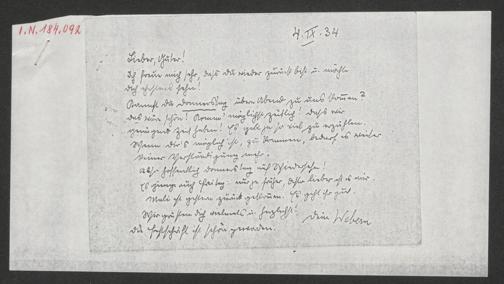 I.N. 184.092
4.IX.34
Lieber, Guter!
Ich freue mich sehr, daß du wieder zurück bist u. möchte
dich sehen!
Kannst du Donnerstag über Abend zu uns kommen?
das wäre schön! Komm möglichst zeitlich! daß wir
genügend Zeit haben! Es gibt ja so viel zu erzählen.
Wenn dir's möglich ist, zu kommen, bedarf es weiter
keiner Verständigung mehr.
Also hoffentlich Donnerstag auf Wiedersehn!
Es ginge auch Freitag: nur je früher, desto lieber ist es mir.
gestern zurück gekommen. Es geht ihr gut.
Wir grüßen dich vielmals u. herzlichst!
Dein Webern
die Festschrift ist schön geworden.